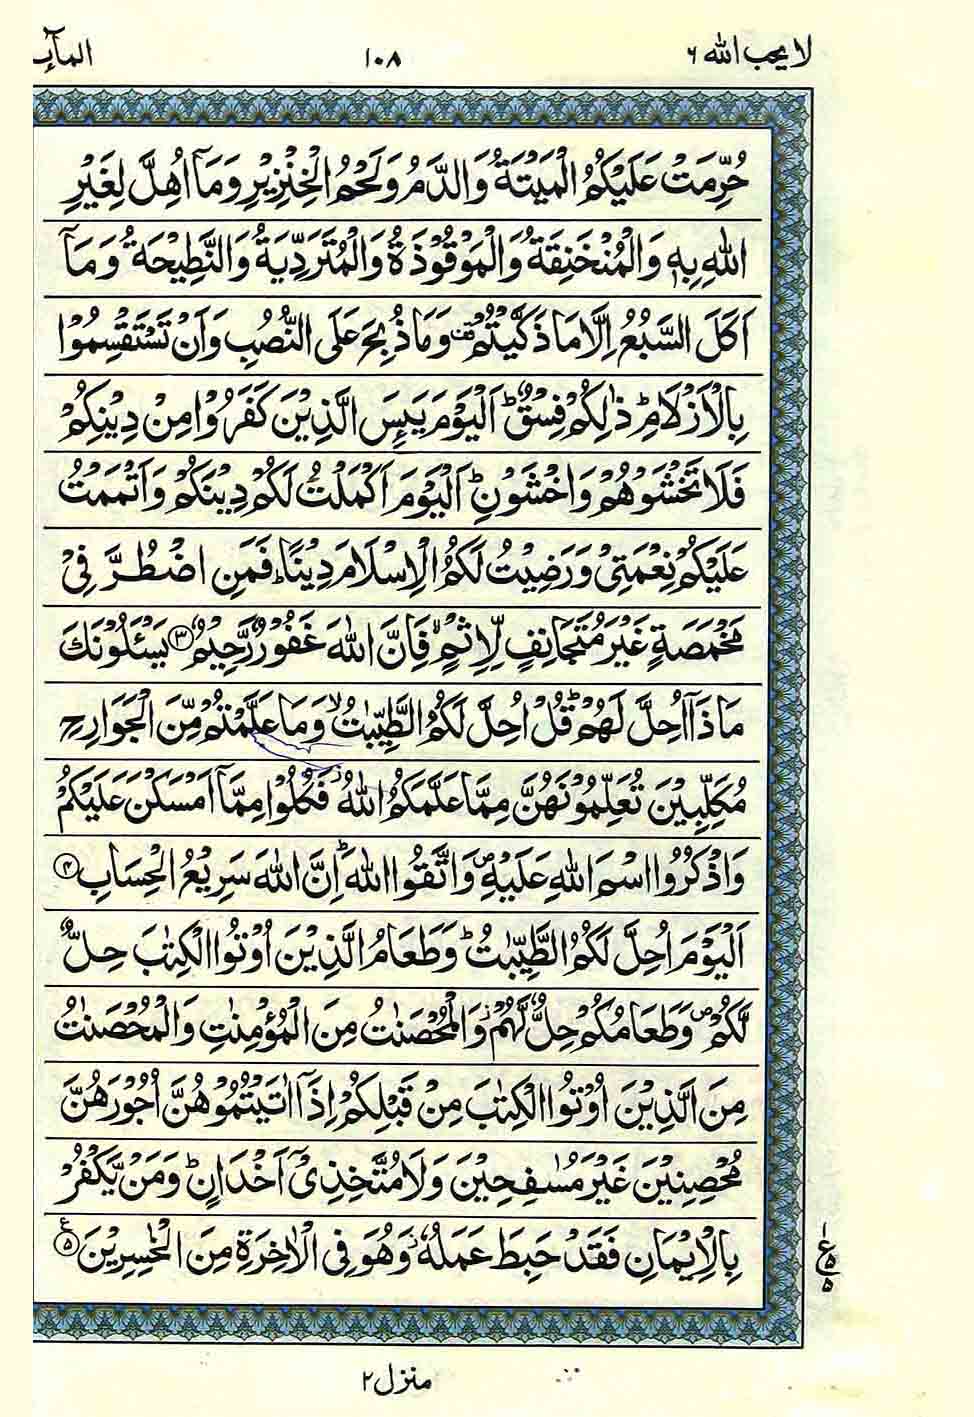 لا يحب الله ٦
١٠٨
المآىِٕدة
حُرِّمَتْ عَلَيْكُمُ الْمَيْتَةُ وَالدَّمُ وَلَحْمُ الْخِنْزِيْرِ وَمَآ اُهِلَّ لِغَيْرِ
اللّٰهِ بِهٖ وَالْمُنْخَنِقَةُ وَالْمَوْقُوْذَةُ وَالْمُتَرَدِّيَةُ وَالنَّطِيْحَةُ وَمَآ
اَكَلَ السَّبُعُ اِلَّا مَا ذَكَّيْتُمْ ۫ وَمَا ذُبِحَ عَلَى النُّصُبِ وَاَنْ تَسْتَقْسِمُوْا
بِالْاَزْلَامِ ؕ ذٰلِكُمْ فِسْقٌ ؕ اَلْيَوْمَ يَىِٕسَ الَّذِيْنَ كَفَرُوْا مِنْ دِيْنِكُمْ
فَلَا تَخْشَوْهُمْ وَاخْشَوْنِ ؕ اَلْيَوْمَ اَكْمَلْتُ لَكُمْ دِيْنَكُمْ وَاَتْمَمْتُ
عَلَيْكُمْ نِعْمَتِيْ وَرَضِيْتُ لَكُمُ الْاِسْلَامَ دِيْنًا ؕ فَمَنِ اضْطُرَّ فِيْ
مَخْمَصَةٍ غَيْرَ مُتَجَانِفٍ لِّاِثْمٍ ۙ فَاِنَّ اللّٰهَ غَفُوْرٌ رَّحِيْمٌ ﴿۳﴾ يَسْـَٔلُوْنَكَ
مَاذَاۤ اُحِلَّ لَهُمْ ؕ قُلْ اُحِلَّ لَكُمُ الطَّيِّبٰتُ ۙ وَمَا عَلَّمْتُمْ مِّنَ الْجَوَارِحِ
مُكَلِّبِيْنَ تُعَلِّمُوْنَهُنَّ مِمَّا عَلَّمَكُمُ اللّٰهُ ؗ فَكُلُوْا مِمَّاۤ اَمْسَكْنَ عَلَيْكُمْ
وَاذْكُرُوا اسْمَ اللّٰهِ عَلَيْهِ ۪ وَاتَّقُوا اللّٰهَ ؕ اِنَّ اللّٰهَ سَرِيْعُ الْحِسَابِ ﴿۴﴾
اَلْيَوْمَ اُحِلَّ لَكُمُ الطَّيِّبٰتُ ؕ وَطَعَامُ الَّذِيْنَ اُوْتُوا الْكِتٰبَ حِلٌّ
لَّكُمْ ۪ وَطَعَامُكُمْ حِلٌّ لَّهُمْ ؗ وَالْمُحْصَنٰتُ مِنَ الْمُؤْمِنٰتِ وَالْمُحْصَنٰتُ
مِنَ الَّذِيْنَ اُوْتُوا الْكِتٰبَ مِنْ قَبْلِكُمْ اِذَاۤ اٰتَيْتُمُوْهُنَّ اُجُوْرَهُنَّ
مُحْصِنِيْنَ غَيْرَ مُسٰفِحِيْنَ وَلَا مُتَّخِذِيْۤ اَخْدَانٍ ؕ وَمَنْ يَّكْفُرْ
بِالْاِيْمَانِ فَقَدْ حَبِطَ عَمَلُهٗ ؗ وَهُوَ فِي الْاٰخِرَةِ مِنَ الْخٰسِرِيْنَ ﴿۵﴾
١
ع
٥
٥
منزل ٢